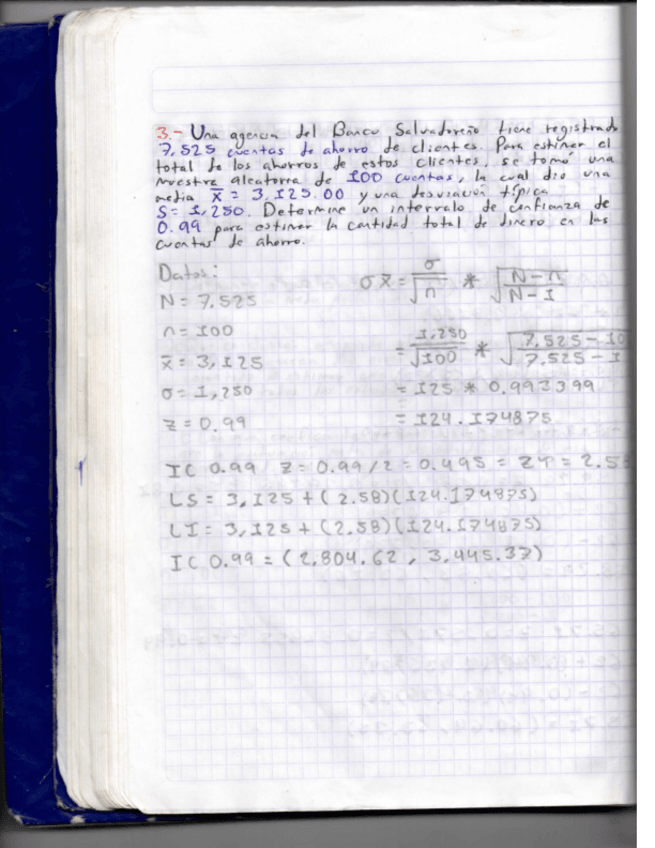 3.- Una agencia del Banco Salvadoreño tiene registrado
7,525 cuentas de ahorro de clientes. Para estimar el
total de los ahorros de estos clientes, se tomó una
muestra aleatoria de 100 cuentas, la cual dio una
media x̄ = 3,125.00 y una desviación típica
S = 1,250. Determine un intervalo de confianza de
0.99 para estimar la cantidad total de dinero en las
cuentas de ahorro.
Datos:
σx̄ = σ/√n * √(N-n)/(N-1)
N = 7,525
n = 100
= 1,250/√100 * √(7,525-10/7,525-1
x̄ = 3,125
σ = 1,250
= 125 * 0.993399
z = 0.99
= 124.174875
IC 0.99 / z = 0.99/2 = 0.495 = ZT = 2.58
LS = 3,125 + (2.58)(124.174875)
LI = 3,125 + (2.58)(124.174875)
IC 0.99 = (2,804.62 , 3,445.37)